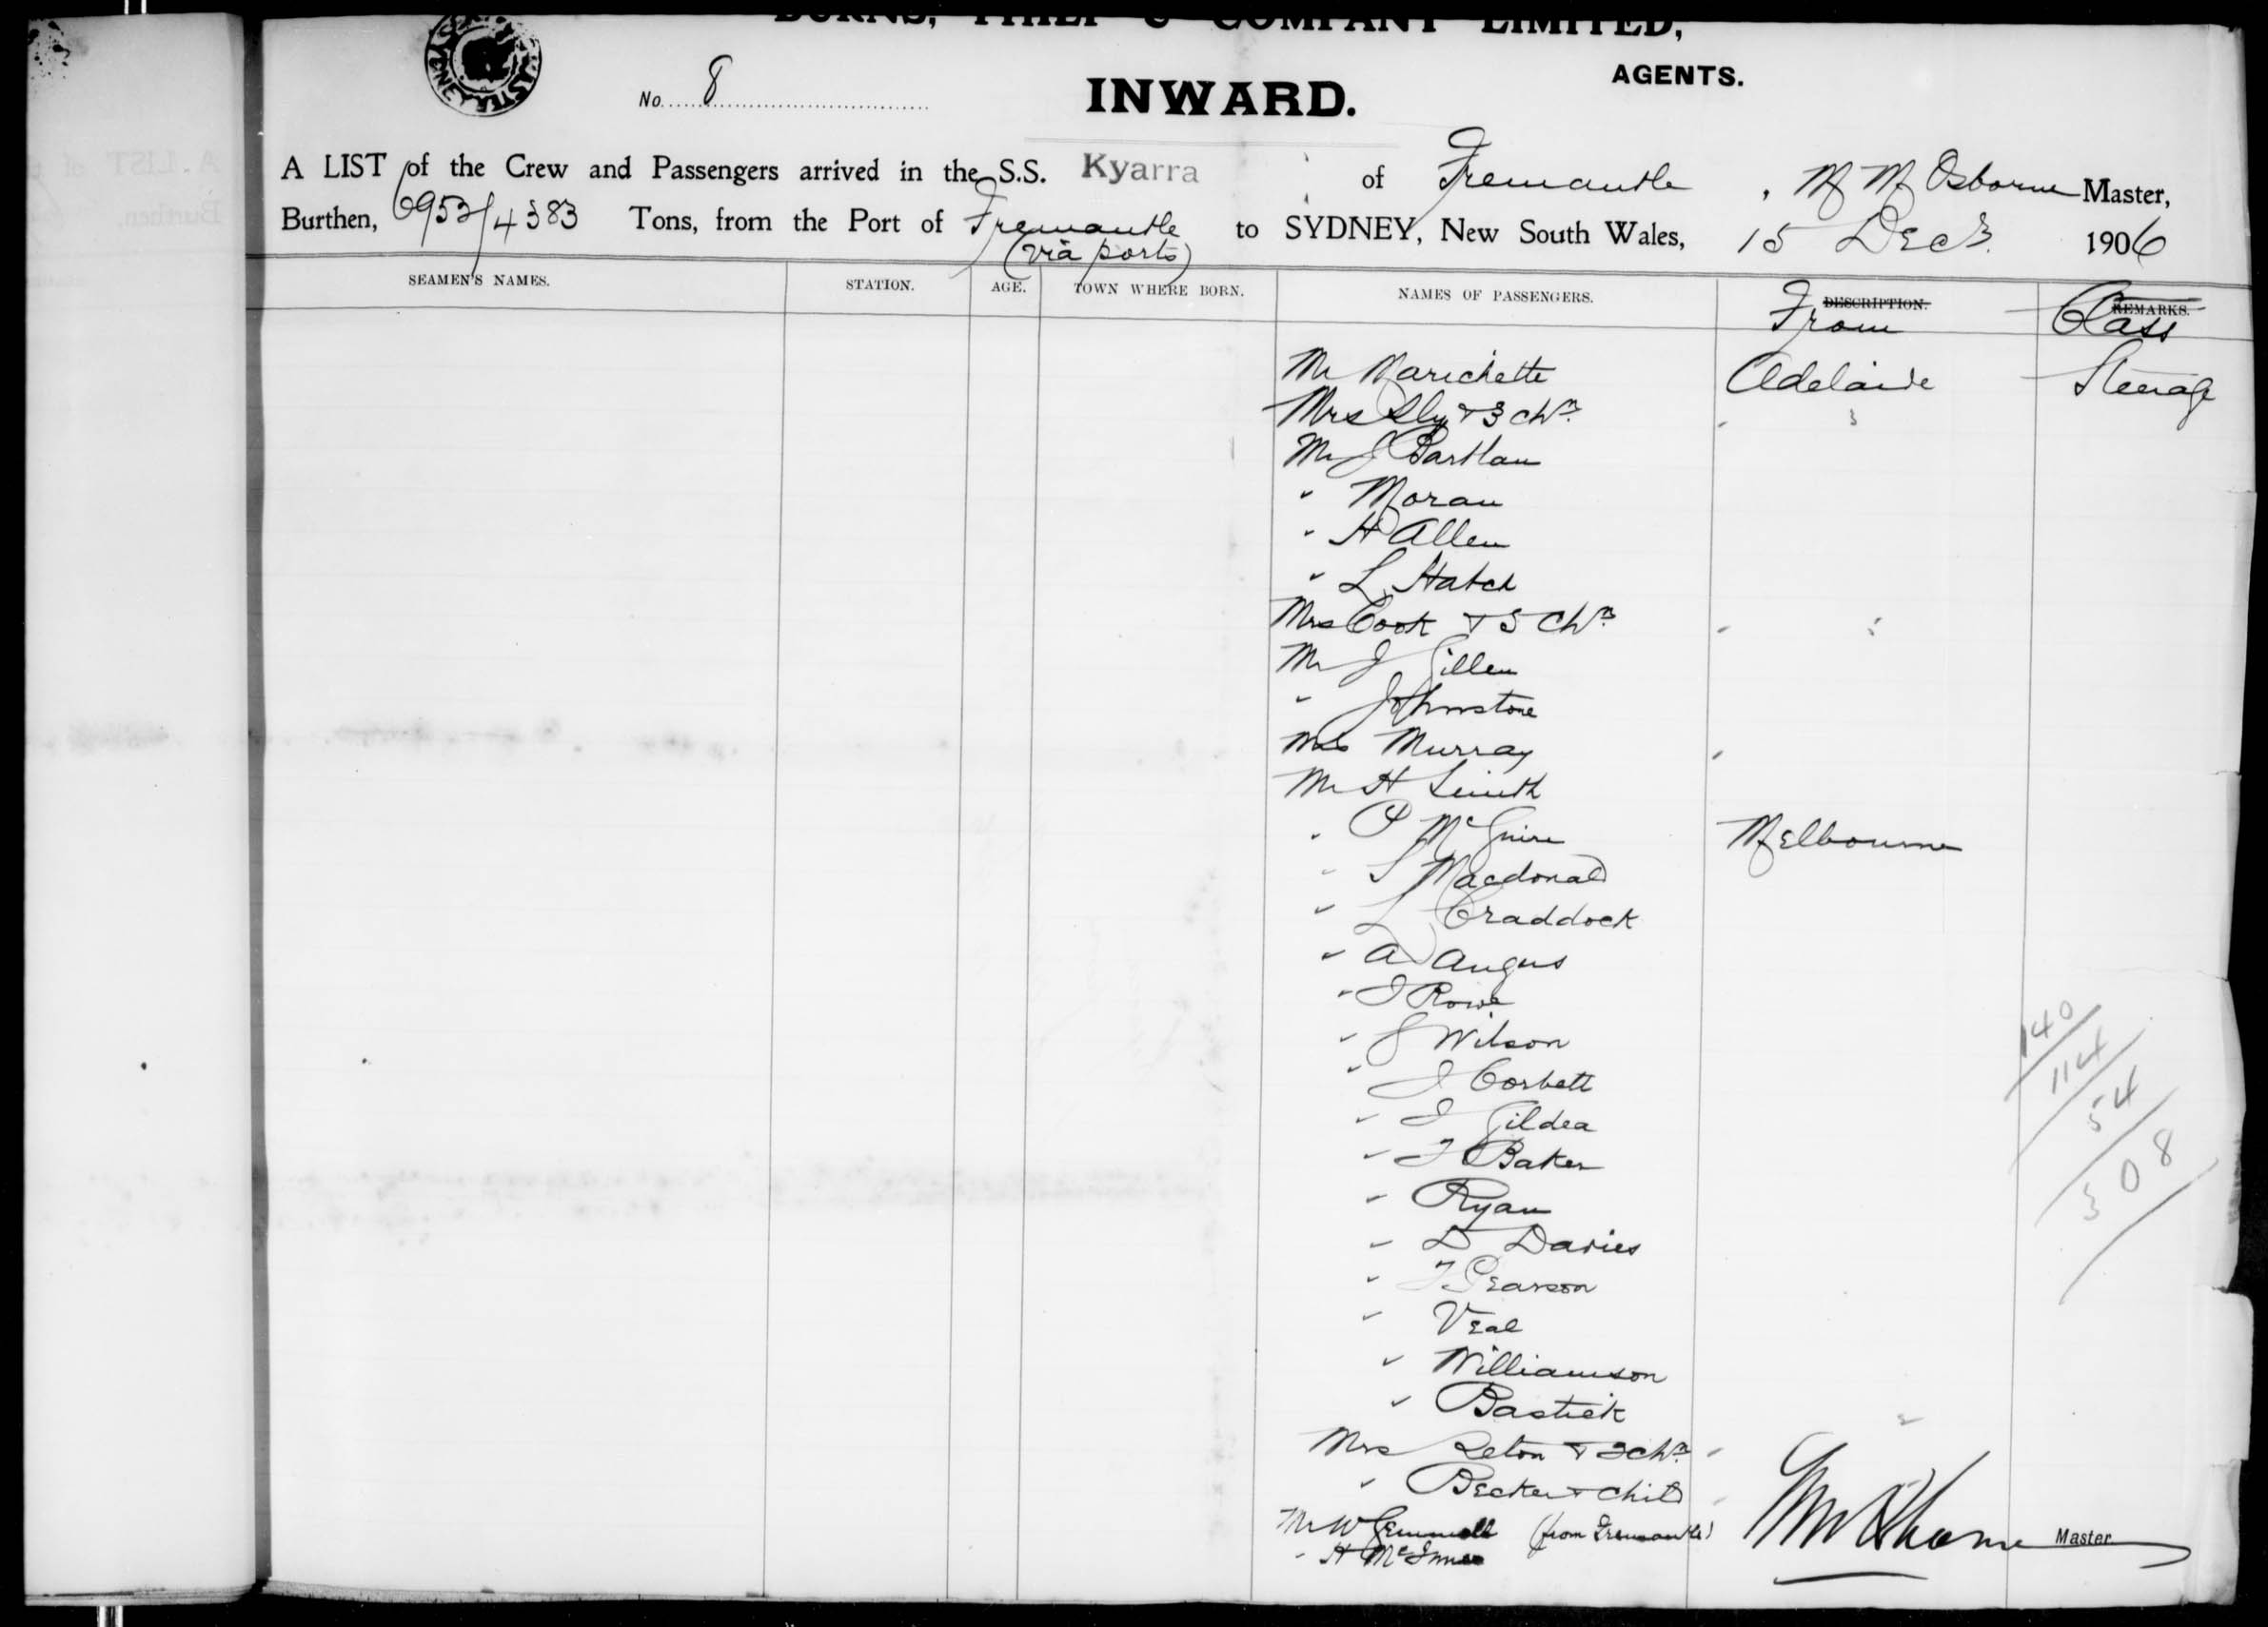 BURNS, PHILP & COMPANY LIMITED,
AGENTS.
No. 8
INWARD.
A LIST of the Crew and Passengers arrived in the S.S. Kyarra of Fremantle, M M Osborne Master,
Burthen, 6953/4383 Tons, from the Port of Fremantle to SYDNEY, New South Wales, 15 Dec 1906
(via ports)
SEAMEN'S NAMES. STATION. AGE. TOWN WHERE BORN. NAMES OF PASSENGERS. DESCRIPTION. REMARKS.
From Class
Mr Marichette Adelaide Steerage
Mrs Sly & 3 chn 3
Mr J Bartlau
" Moran
" H Allen
" L Hatch
Mrs Cook & 5 chn 5
Mr J Gillen
" Johnstone
Mrs Murray
Mr H Smith
" P McGuire Melbourne
" S Macdonald
" L Craddock
" A Angus
" J Rowe
" J Wilson
" J Corbett
" J Gildea
" J Baker
" Ryan
" D Davies
" J. Pearson
" Veal
" Williamson
" Bastick
Mrs Seton & 2 chn 2
" Becker & child
Mr W Gemmell (from Fremantle)
" H McInnes
Master
140
114
54
308